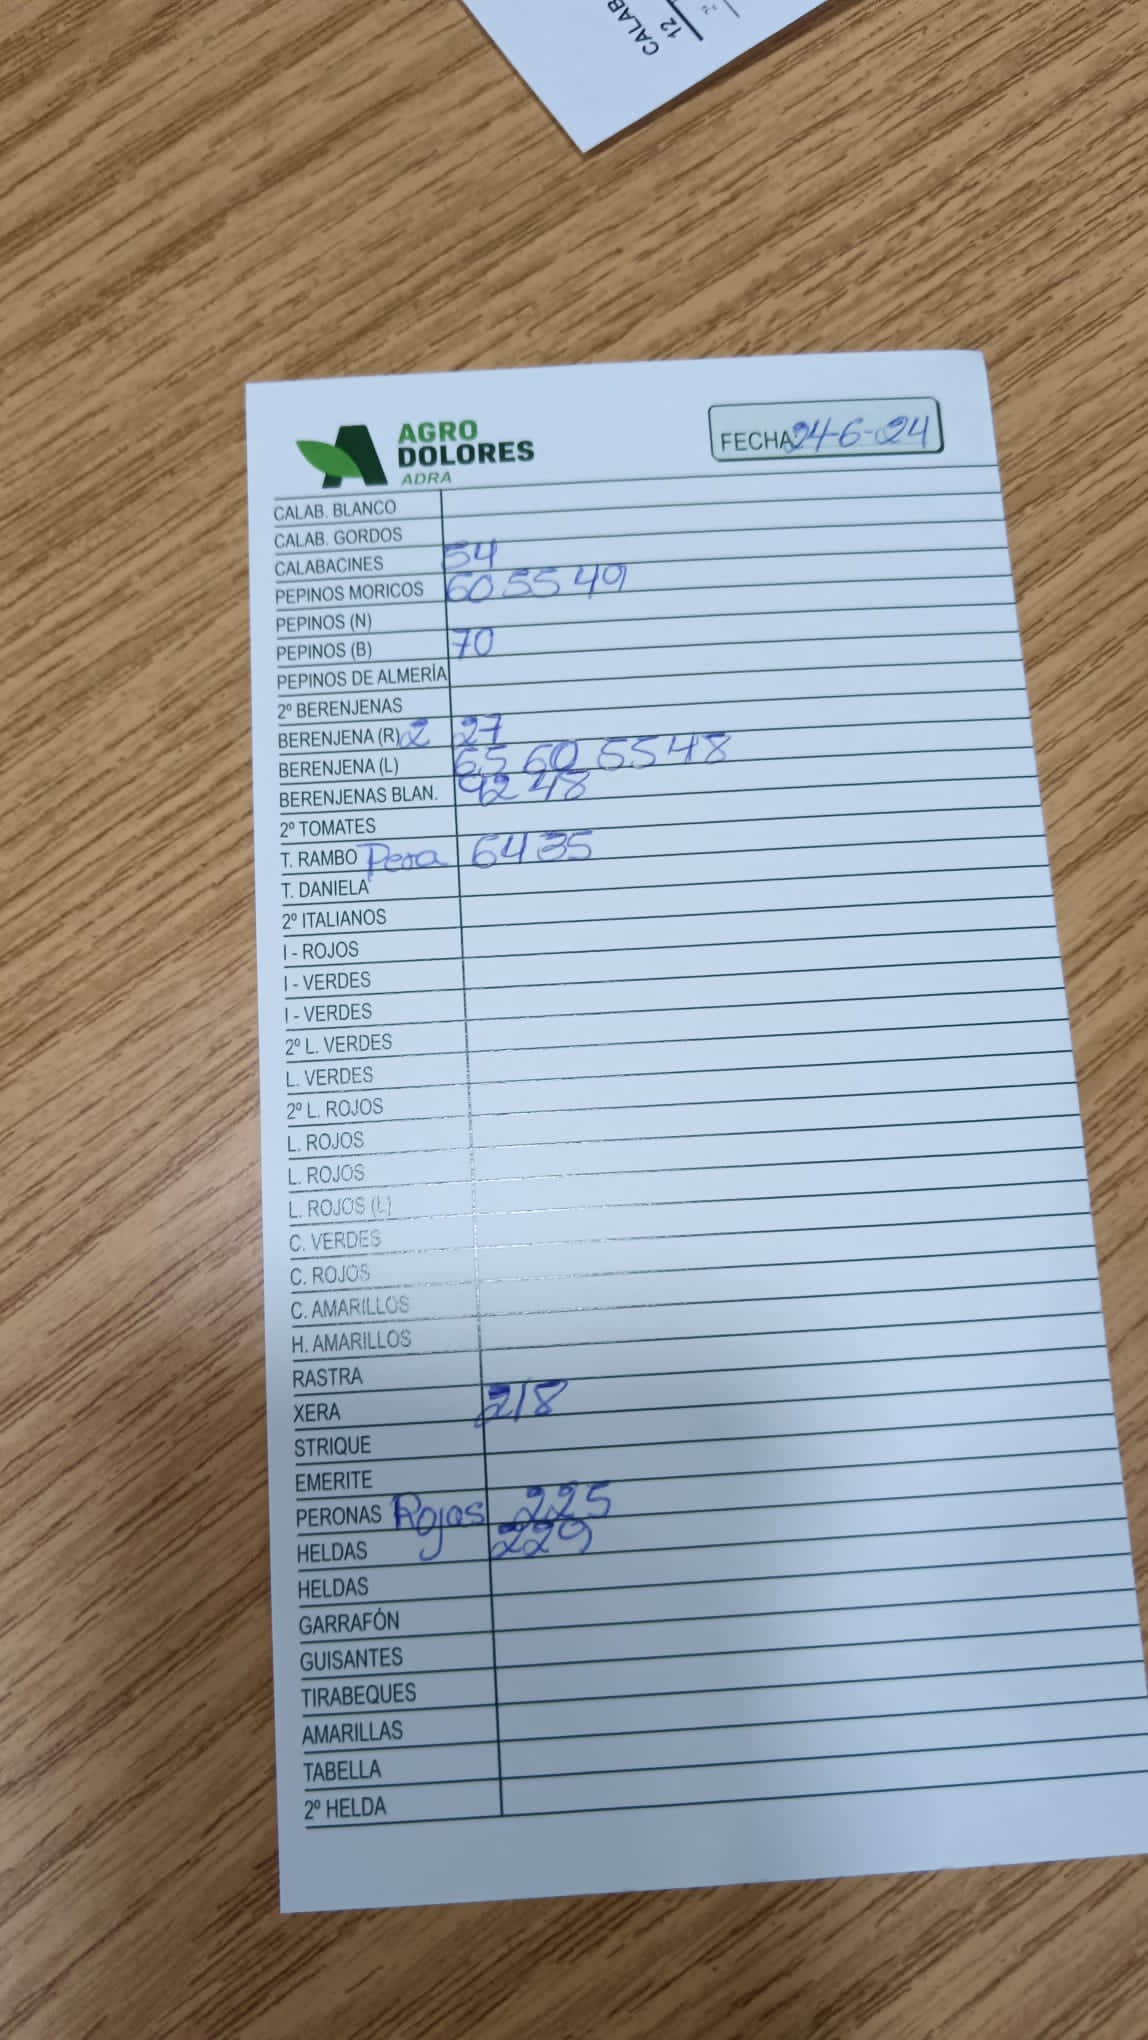 CALAB
12
AGRO
DOLORES
ADRA
FECHA 24-6-24
CALAB. BLANCO
CALAB. GORDOS
CALABACINES 54
PEPINOS MORICOS 60 55 49
PEPINOS (N)
PEPINOS (B) 70
PEPINOS DE ALMERÍA
2º BERENJENAS
BERENJENA (R) 2 27
BERENJENA (L) 65 60 55 48
BERENJENAS BLAN. 92 48
2º TOMATES
T. RAMBO Pera 64 35
T. DANIELA
2º ITALIANOS
I - ROJOS
I - VERDES
I - VERDES
2º L. VERDES
L. VERDES
2º L. ROJOS
L. ROJOS
L. ROJOS
L. ROJOS (L)
C. VERDES
C. ROJOS
C. AMARILLOS
H. AMARILLOS
RASTRA
XERA 218
STRIQUE
EMERITE
PERONAS Rojas 225
HELDAS 229
HELDAS
GARRAFÓN
GUISANTES
TIRABEQUES
AMARILLAS
TABELLA
2º HELDA